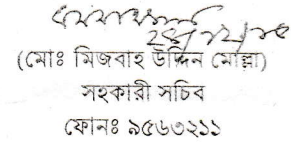 (মোঃ মিজবাহ উদ্দিন মোল্লা)
সহকারী সচিব
ফোনঃ ৯৫৬৩২১১